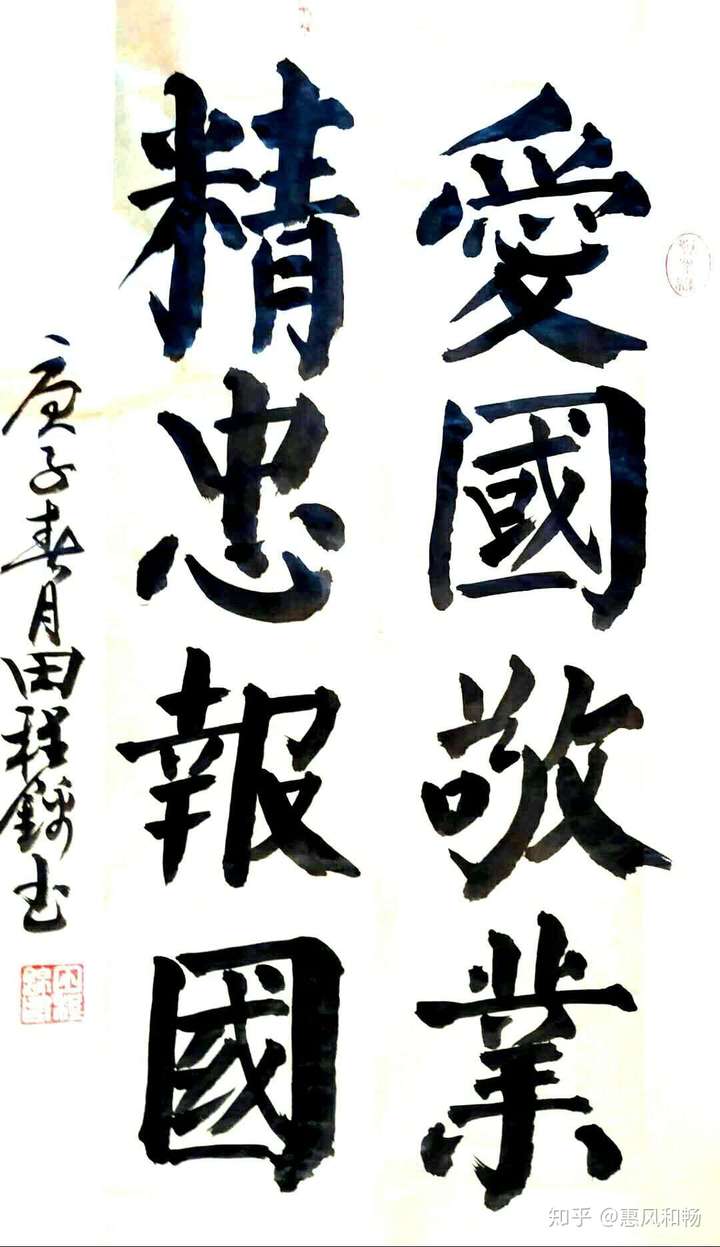 愛國敬業
精忠報國
庚子春月田程錦书
知乎 @惠风和畅